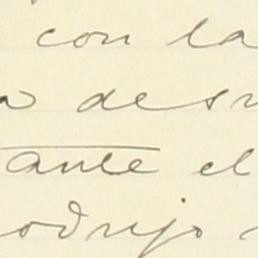 con la
a des
ante el
odrijo